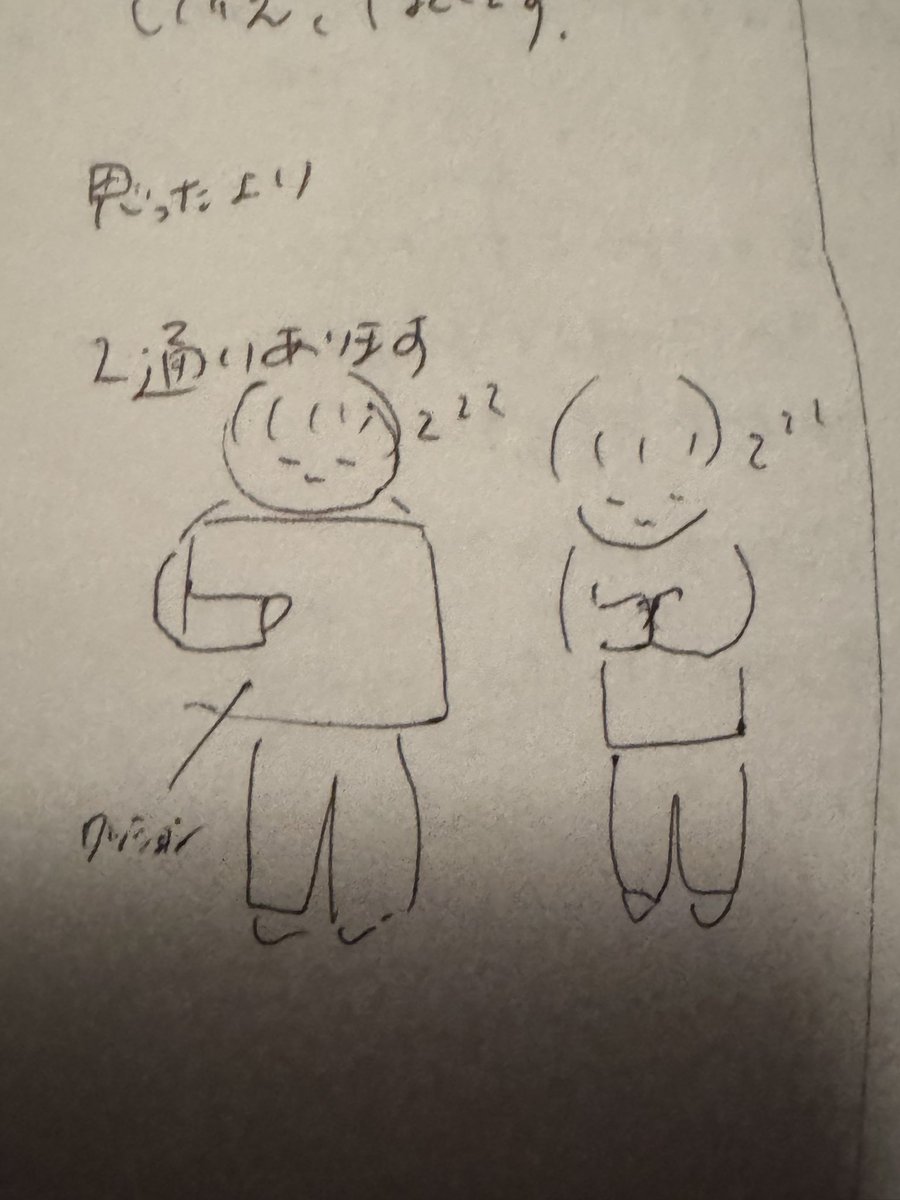 思ったより
2通りあります
zzz
zzz
クッション